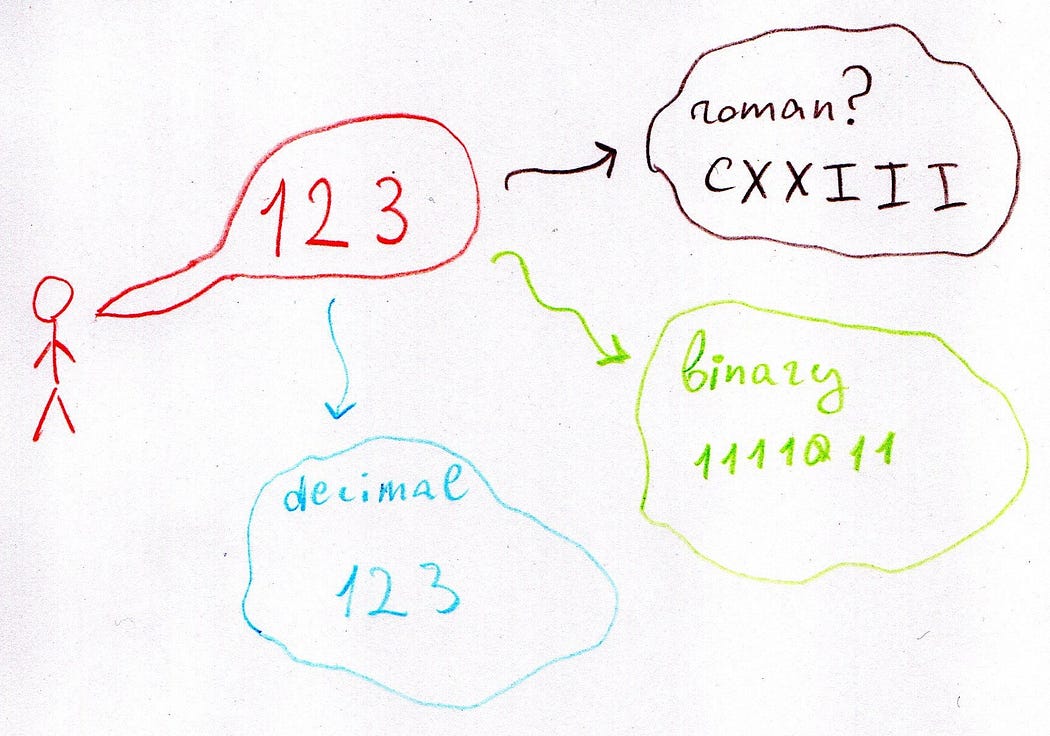 123
roman?
CXXIII
binary
1111011
decimal
123